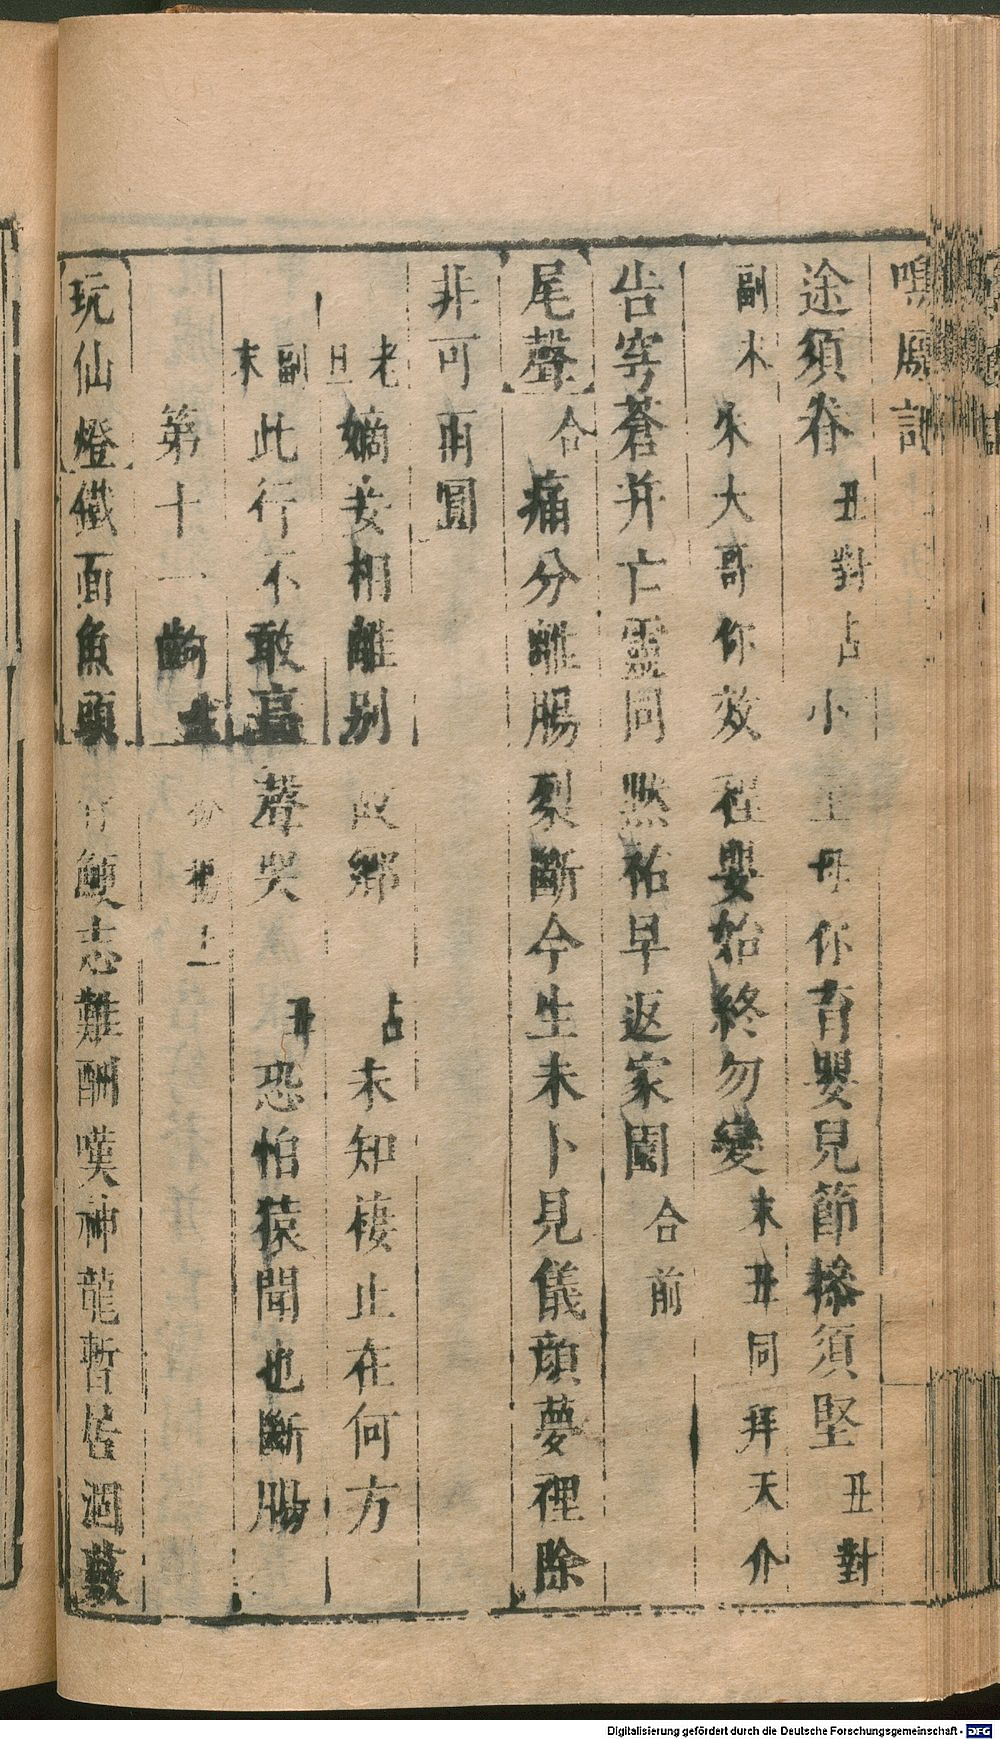 鳴鳳記
途須眷丑對占小主母你育嬰兒節操須堅丑對
副末朱大哥你效程嬰始終勿變末丑同拜天介
告穹蒼并亡靈同默祐早返家園合前
尾聲合痛分離腸裂斷今生未卜見儀顔夢裡除
非可再圓
老旦嫡妾相離别故鄉占未知棲止在何方
副末此行不敢高聲哭丑恐怕猿聞也斷腸
第十一齣生粉楊上
玩仙燈鐵面魚頭骨鯁志難酬嘆神龍暫居涸藪
Digitalisierung gefördert durch die Deutsche Forschungsgemeinschaft - DFG